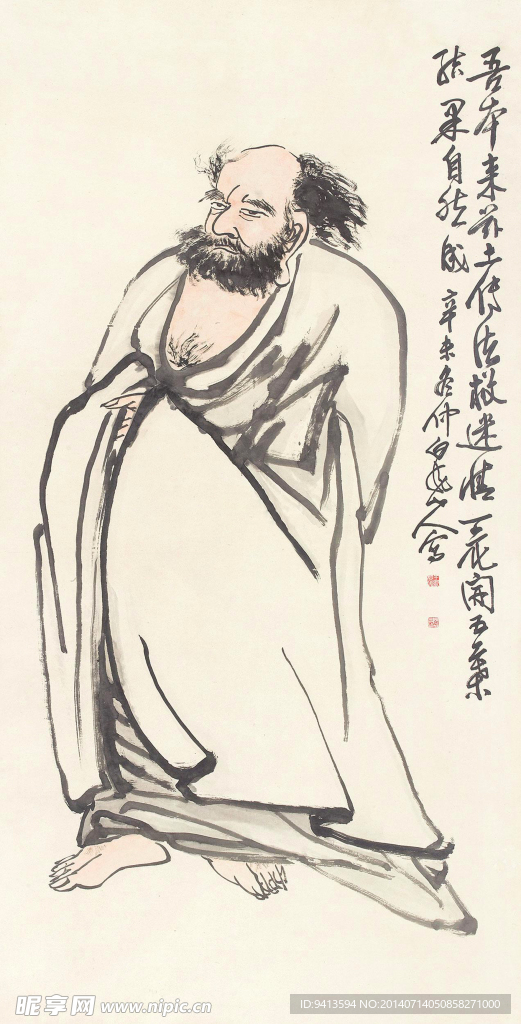 吾本来兹土传法救迷情一花开五叶
结果自然成 辛未冬仲白龙山人写
昵享网 www.nipic.cn
ID:9413594 NO:20140714050858271000